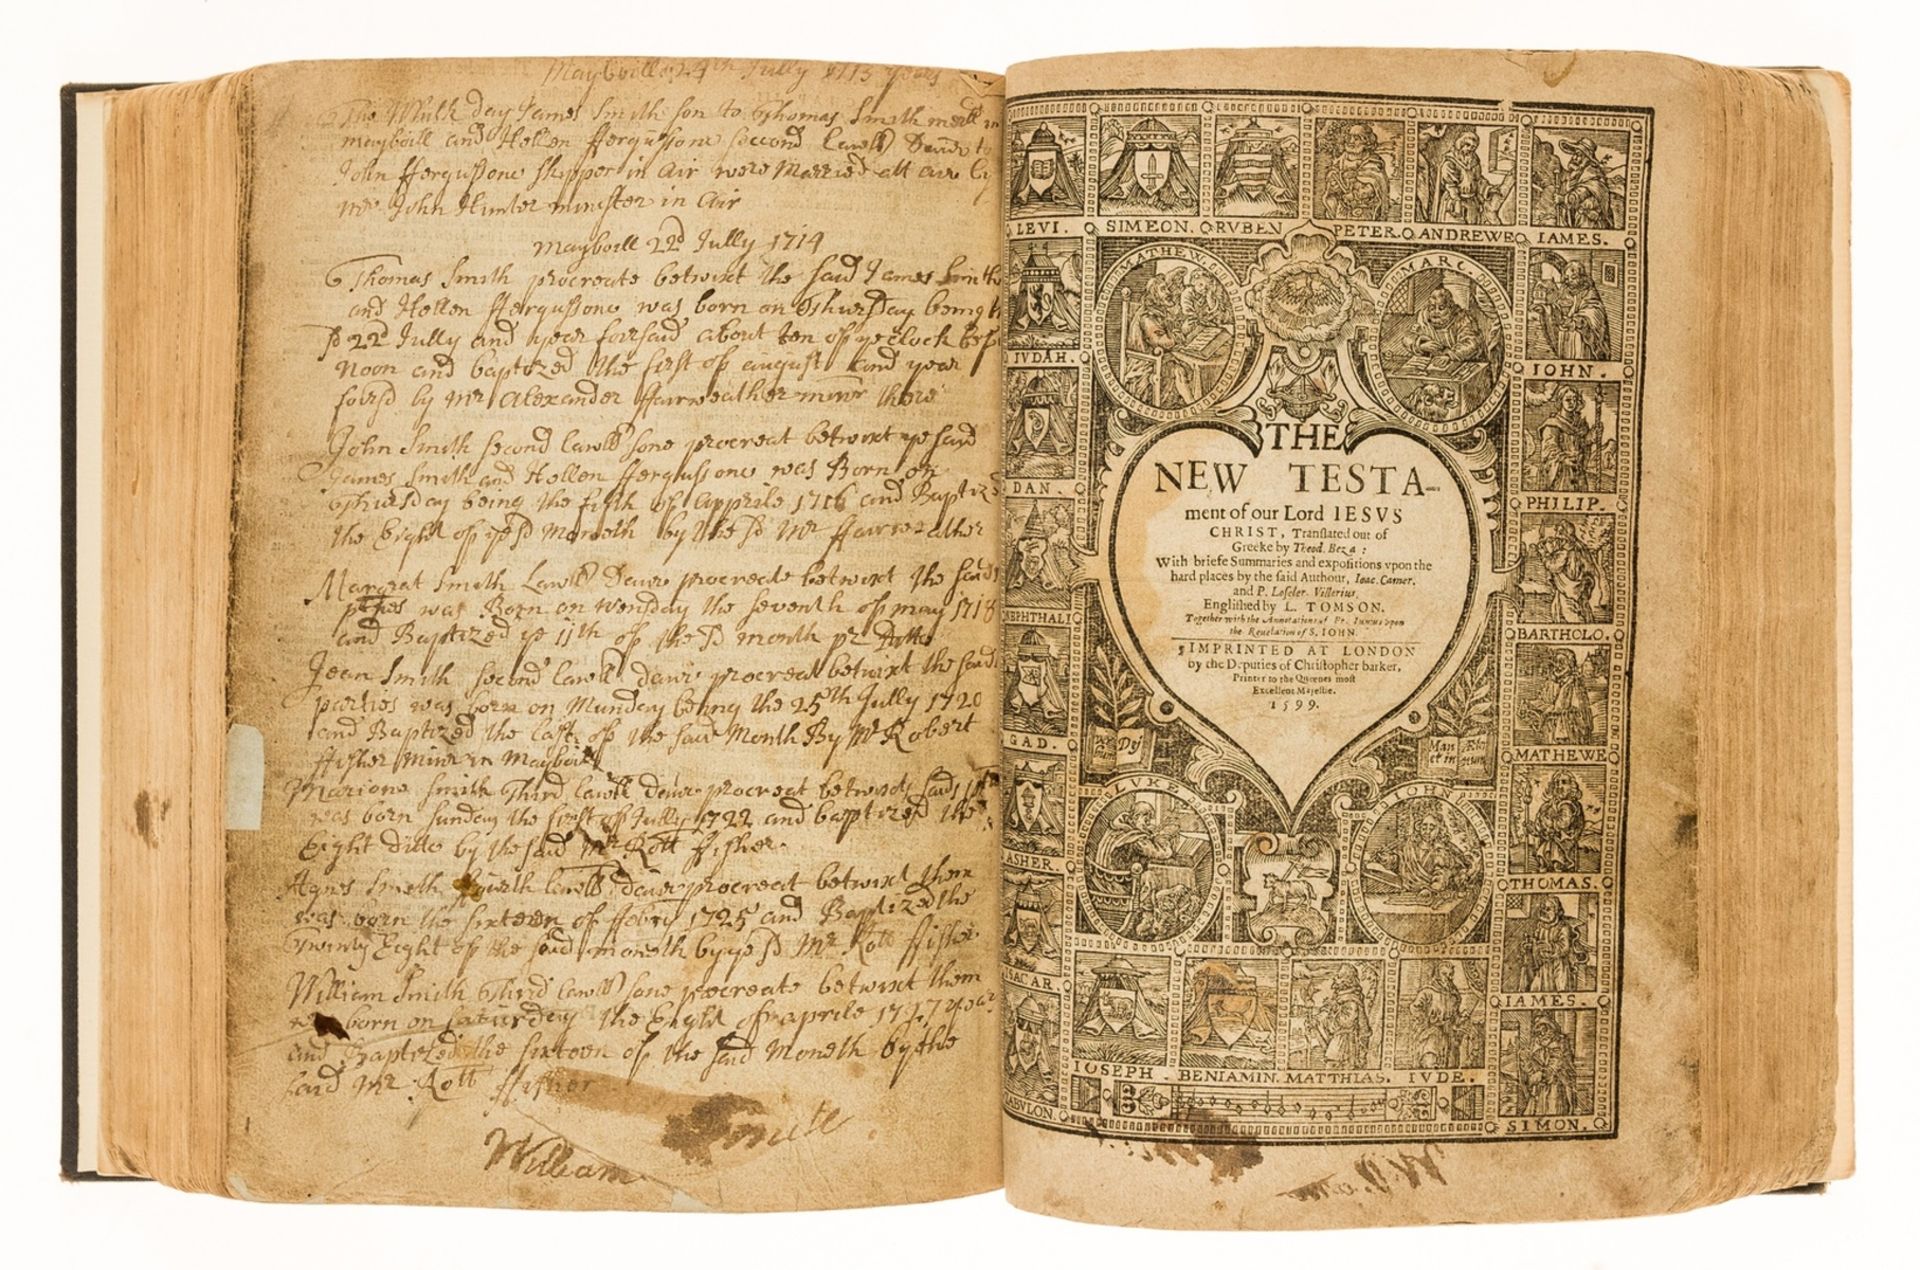 Mayboill 24th Jully 1713 years
The Which day James Smith son to Thomas Smith in
mayboill and Hellen ffergussone second lawll to
John ffergussone skipper in Air were Married att air by
mr John Hunter minister in Air
Mayboill 22d Jully 1714
Thomas Smith procreate betwixt the said James Smith
and Hellen ffergussone was born on Thursday being
22d Jully and year forsaid about ten of ye clock
Noon and baptized the first of august and year
forsd by Mr Alexander ffairweather minr there
John Smith second lawll sone procreat betwixt ye said
James Smith and Hellen ffergussone was Born on
Thursday being the fifth of Apprile 1716 and Baptized
the Eight of ye sd Moneth by the sd Mr ffairweather
Margrat Smith Lawll Dawr procreate betwixt the saids
was Born on Wensday the seventh of may 1718
and Baptized ye 11th of the sd month pr Ditto
Jean Smith second lawll dawr procreat betwixt the saids
parties was born on Munday being the 25th Jully 1720
and Baptized the last of the said Month By Mr Robert
ffisher minr in Mayboill
Marione Smith Third lawll dawr procreat betwixt saids
was born Sunday the first of Jully 1722 and baptized the
Eight ditto by the said Mr Rott ffisher
Agnes Smith fourth lawll dawr procreat betwixt them
was born the sixteen of ffebry 1725 and Baptized the
Twenty Eight of the said moneth by ye sd Mr Rott ffisher
William Smith Third lawll sone procreate betwixt them
born on Saturday the Eight of aprile 1727 year
and Baptized the sixteen of the said Moneth by the
said Mr Rott ffisher
William Smith
LEVI. SIMEON. RVBEN PETER. ANDREWE IAMES.
MATHEW. MARC.
IVDAH. IOHN.
DAN. PHILIP.
NEPHTHALI BARTHOLO.
GAD. MATHEWE
LVKE IOHN
ASHER THOMAS.
ISACAR. IAMES.
ZABVLON. IOSEPH. BENIAMIN. MATTHIAS. IVDE. SIMON.
THE
NEW TESTA-
ment of our Lord IESVS
CHRIST, Translated out of
Greeke by Theod. Beza:
With briefe Summaries and expositions vpon the
hard places by the said Authour, Ioac. Camer.
and P. Loseler. Villerius,
Englished by L. TOMSON.
Together with the Annotations of Fr. Iunius vpon
the Reuelation of S. IOHN.
IMPRINTED AT LONDON
by the Deputies of Christopher barker,
Printer to the Queenes most
Excellent Maiestie.
1599.